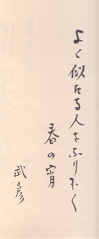 よく似たる人をふりむく
春の宵
武彦